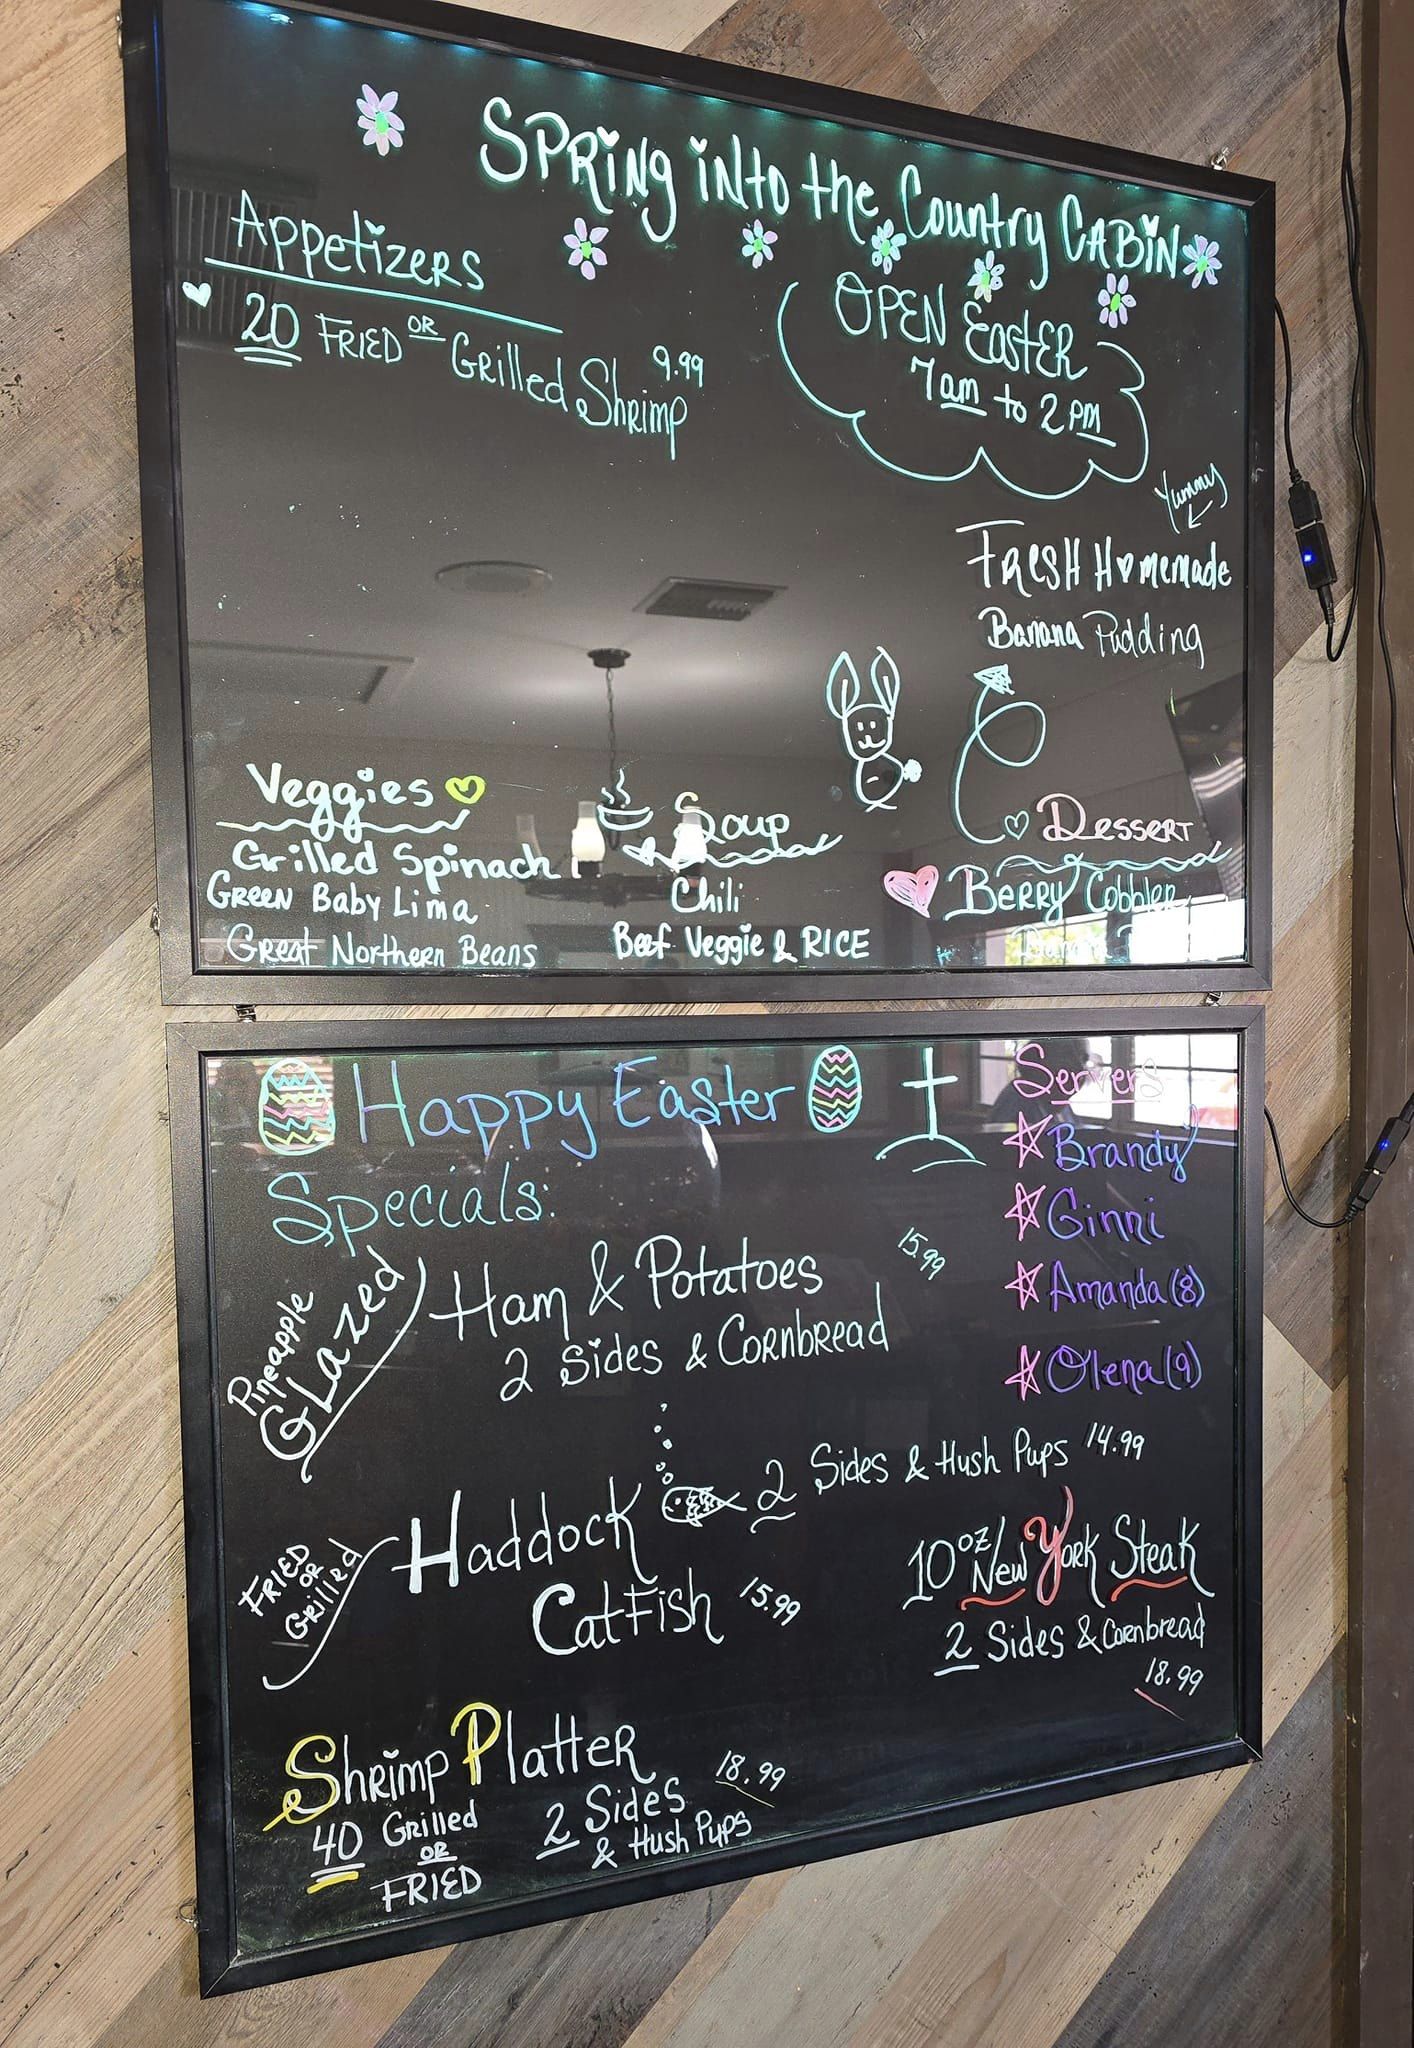 SPRING into the Country CABIN
Appetizers
20 FRIED OR Grilled Shrimp 9.99
OPEN EastER
7am to 2pm
Yummy
FRESH Homemade
Banana Pudding
Veggies
Grilled Spinach
GREEN Baby Lima
Great Northern Beans
Soup
Chili
Beef Veggie & RICE
DESSERT
BERRY Cobbler
Happy Easter
Specials:
Servers
Brandy
Ginni
Amanda (8)
Olena (9)
Pineapple
GLazed
Ham & Potatoes 15.99
2 Sides & CORNbREad
Haddock 2 Sides & Hush Pups 14.99
FRIED
OR
Grilled
CatFish 15.99
10oz New York Steak
2 Sides & Cornbread
18.99
Shrimp PlattER 18.99
40 Grilled
OR
FRIED
2 Sides
& Hush Pups